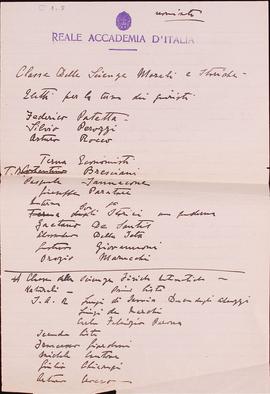 REALE ACCADEMIA D'ITALIA
Classe delle Scienze Morali e Storiche
Eletti per la terna dei giuristi
Federico Patetta
Silvio Perozzi
Arturo Rocco
Terna Economisti
Bresciani
Pasquale Jannaccone
Giuseppe Paratore
Gaetano De Sanctis
Alessandro Della Seta
Gustavo Giovannoni
Orazio Marucchi
Classe delle Scienze Fisiche Matematiche
Naturali - Prima lista
S. A. R. Luigi di Savoia Duca degli Abruzzi
Luigi De Marchi
Carlo Fabrizio Parona
Seconda lista
Francesco Giordani
Michele
Giulio
Arturo